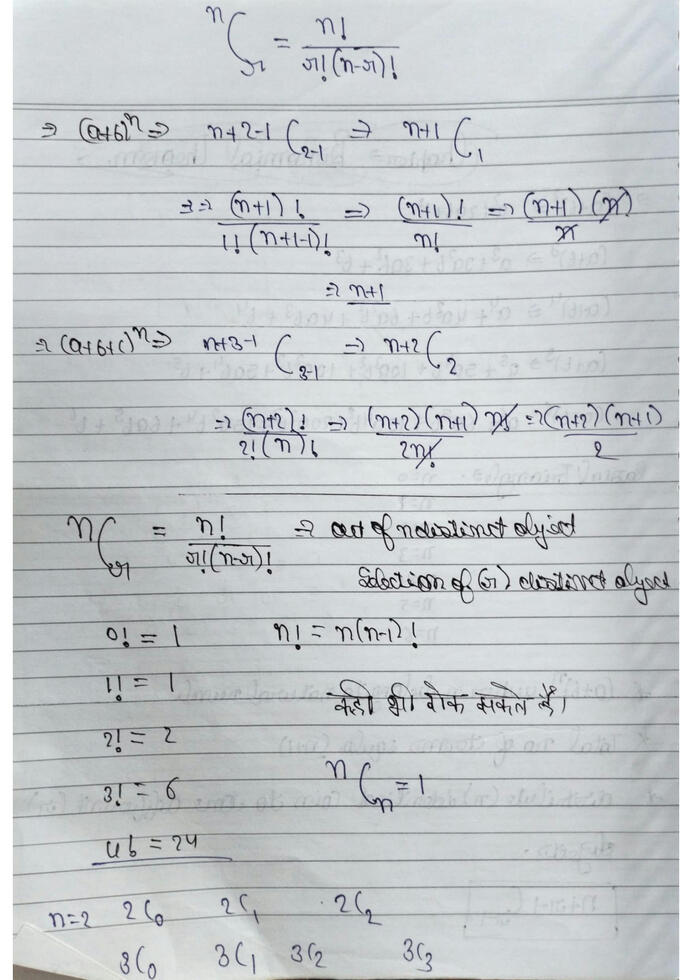 nCr = n!/r!(n-r)!
⇒ (a+b)^n ⇒ n+2-1C2-1 ⇒ n+1C1
⇒ (n+1)!/1!(n+1-1)! ⇒ (n+1)!/n! ⇒ (n+1)(n)/n
⇒ n+1
⇒ (a+b+c)^n ⇒ n+3-1C3-1 ⇒ n+2C2
⇒ (n+2)!/2!(n)! ⇒ (n+2)(n+1)n!/2n! ⇒ (n+2)(n+1)/2
nCr = n!/r!(n-r)! ⇒ out of n distinct object
Selection of (r) distinct object
0! = 1 n! = n(n-1)!
1! = 1
कही भी रोक सकते है।
2! = 2
nCn = 1
3! = 6
4! = 24
n=2 2C0 2C1 2C2
3C0 3C1 3C2 3C3